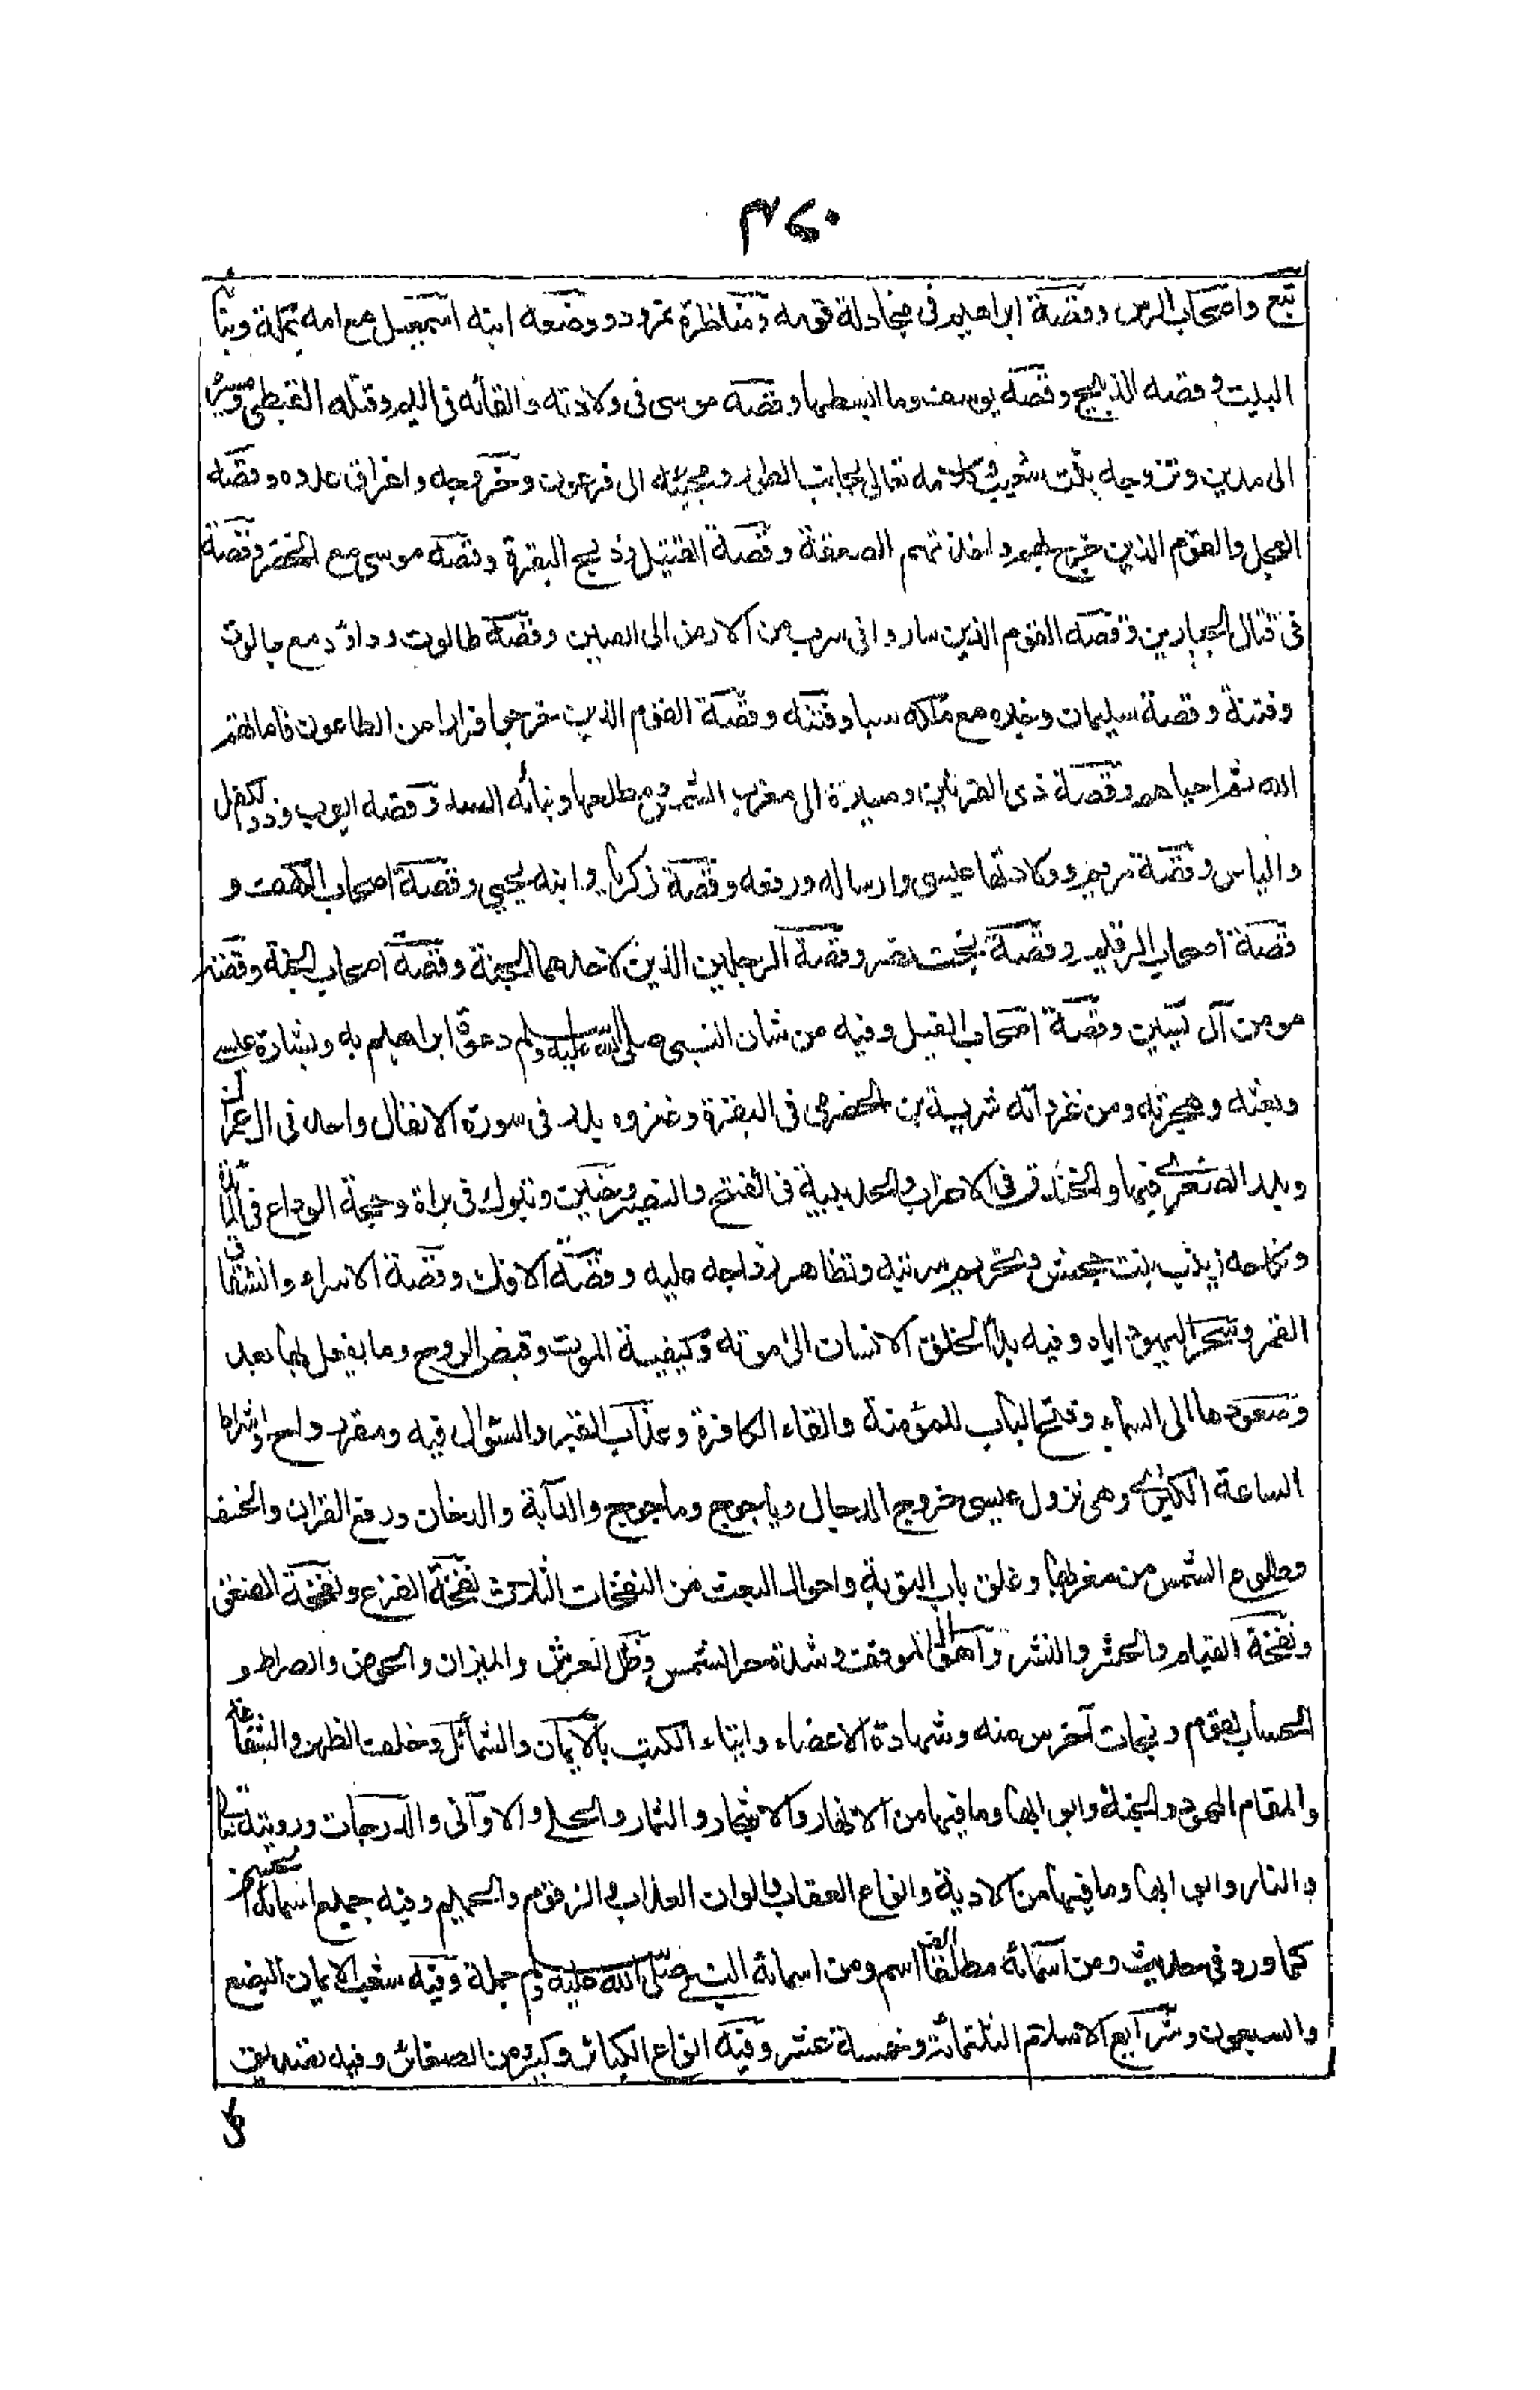 ٣٤٠
تبع واصحاب الرس وقصة ابراهيم فى مجادلة قومه ومناظرة نمرود ووضعه ابنه اسمعيل مع امه بمكة وبنا
البيت وقصه الذبيح وقصه يوسف وما ابسطها وقصه موسى فى ولادته والقائه فى اليم وقتله القبطى ومسيره
الى مدين وتزوجه بنت شعيب وكلامه تعالى بجانب الطور ومجيئه الى فرعون وخروجه واغراق عدوه وقصه
العجل والقوم الذين خرج بهم واخذتهم الصعقة وقصة القتيل وذبح البقرة وقصه موسى مع الخضر وقصة
فى قتال الجبارين وقصه القوم الذين ساروا فى سرب من الارض الى الصين وقصة طالوت وداؤد مع جالوت
وفتنة وقصة سليمان وخبره مع ملكه سبا وفتنه وقصة القوم الذين خرجوا فرارا من الطاعون فاماتهم
الله ثم احياهم وقصة ذى القرنين ومسيرة الى مغرب الشمس ومطلعها وبنائه السد وقصه ايوب وذوالكفل
والياس وقصة مريم وولادتها عيسى وارساله ورفعه وقصة زكريا وابنه يحيى وقصة اصحاب الكهف و
قصة اصحاب الرقيم وقصة بخت نصر وقصة الرجلين الذين لاحدهما الجنة وقصة اصحاب الجنة وقصة
مومن آل يسين وقصة اصحاب الفيل وفيه من شان النبى صلى الله عليه وسلم دعوة ابراهيم به وبشارة عيسى
وبعثه وهجرته ومن غزواته سرية بن الحضرمى فى البقرة وغزوه بدر فى سورة الانفال واحد فى ال عمران
وبدر الصغرى فيها والخندق فى الاحزاب والحديبية فى الفتح والنضير وحنين وتبوك فى براة وحجة الوداع فى المائدة
ونكاحه زينب بنت جحش وتحريم سريته وتظاهر ازواجه عليه وقصة الافك وقصة الاسراء وانشقاق
القمر وسحر اليهود اياه وفيه بدأ خلق الانسان الى موته وكيفية الموت وقبض الروح وما يفعل بها بعد
وصعودها الى السماء وفتح الباب للمؤمنة والقاء الكافرة وعذاب القبر والسؤال فيه ومقر الارواح واشراط
الساعة الكبرى وهى نزول عيسى خروج الدجال وياجوج وماجوج والدآبة والدخان ورفع القران والخسف
وطلوع الشمس من مغربها وغلق باب التوبة واحوال البعث من النفخات الثلاث نفخة الفزع ونفخة الصعق
ونفخة القيام والحشر والنشر واهوال الموقف وشدة حر الشمس وظل العرش والميزان والحوض والصراط و
الحساب لقوم ونجات آخرين منه وشهادة الاعضاء وايتاء الكتب بالايمان والشمائل وخلف الظهر والشفاعة
والمقام المحمود والجنة وابوابها وما فيها من الانهار والاشجار والثمار والحلى والاوانى والدرجات ورويته تعالى
والنار وابوابها وما فيها من الاودية وانواع العقاب والوان العذاب والزقوم والحميم وفيه جميع اسمائه الحسنى
كما ورد فى حديث ومن اسمائه مطلقا الف اسم ومن اسمائه النبى صلى الله عليه وسلم جملة وفيه شعب الايمان البضع
والسبعون وشرايع الاسلام الثلثمائة وخمسة عشر وفيه انواع الكبائر وكثير من الصغائر وفيه تصديق